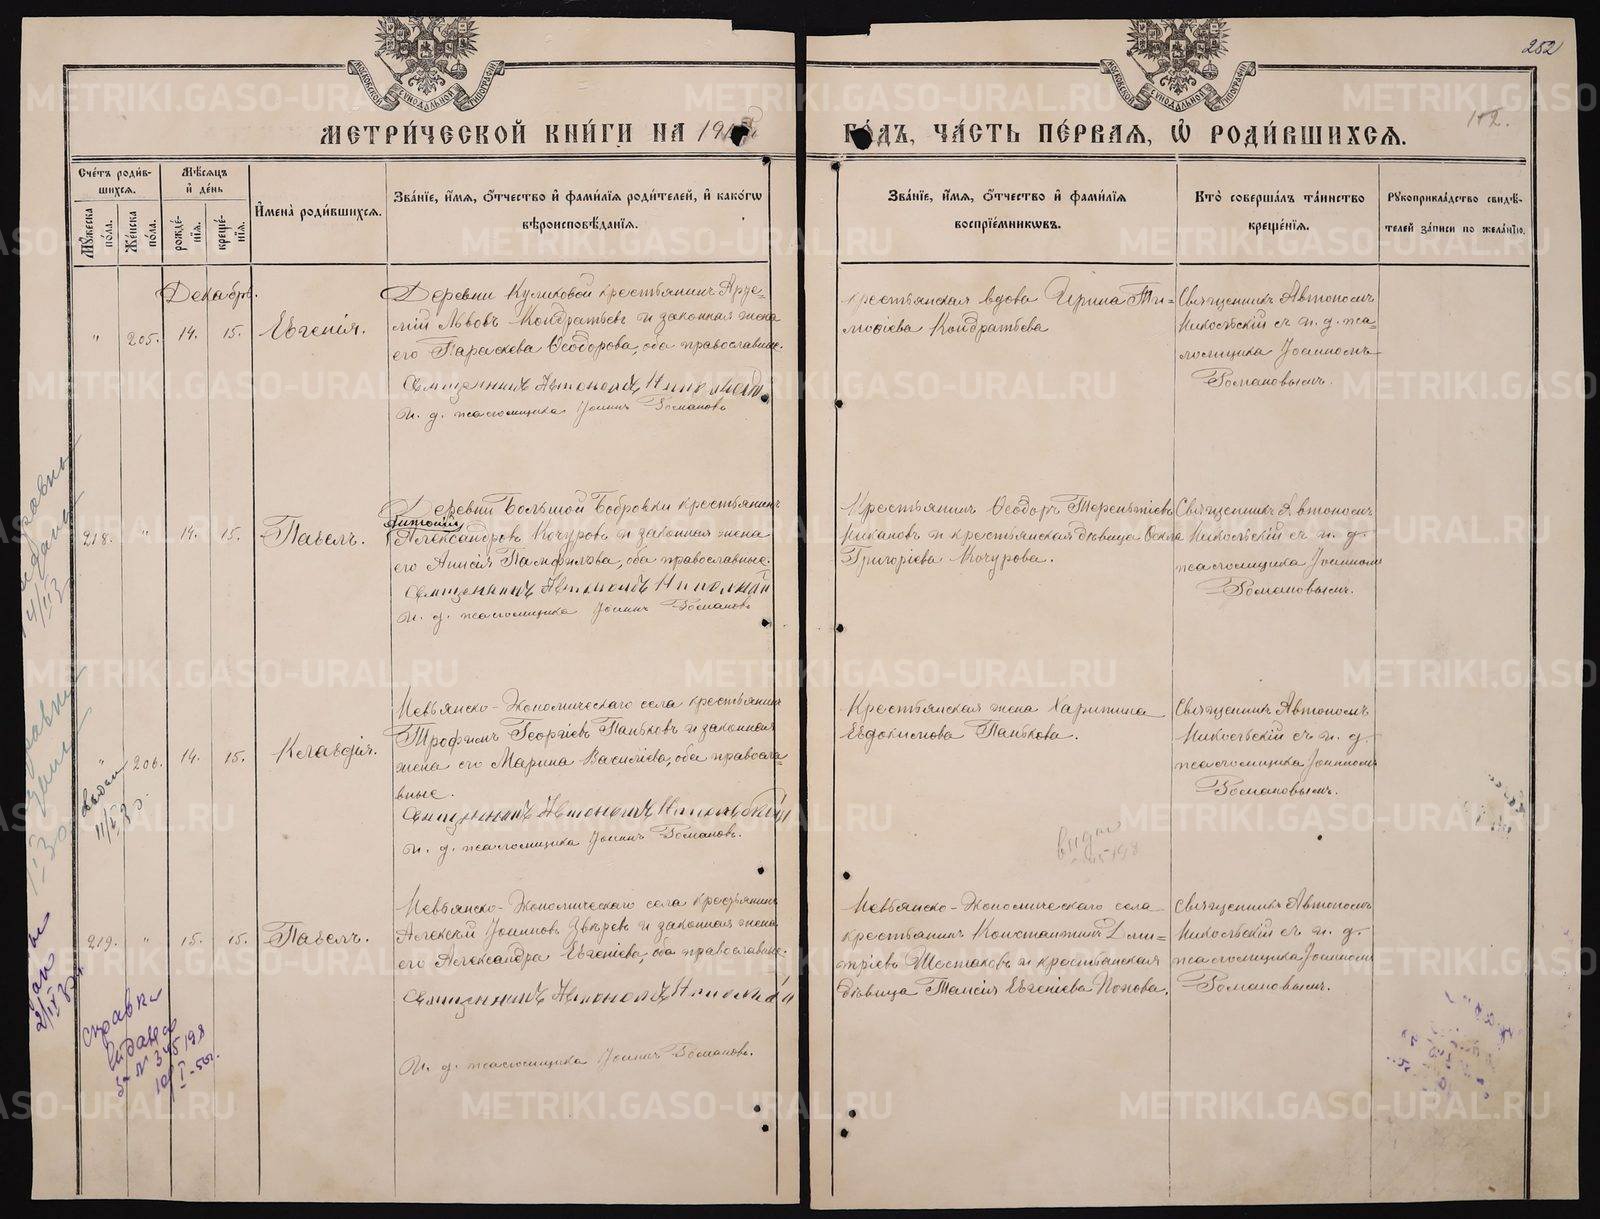 252
МОСКОВСКОЙ СѴНОДАЛЬНОЙ ТИПОГРАФІИ
МОСКОВСКОЙ СѴНОДАЛЬНОЙ ТИПОГРАФІИ
МЕТРИ́ЧЕСКОЙ КНИ́ГИ НА
ГО́ДЪ, ЧА́СТЬ ПЕ́РВАЯ, Ѿ РОДИ́ВШИХСЯ.
Сче́тъ роди́в-
шихся.
Мꙋ́жеска по́ла.
Же́нска по́ла.
Мѣ́сяцъ
и҆ де́нь
рожде́-
нїя.
креще́-
нїя.
И҆мена̀ роди́вшихся.
Зва́нїе, и҆́мя, ѻ҆́тчество и҆ фами́лїя роди́телей, и҆ како́гѡ
вѣроисповѣ́данїя.
Зва́нїе, и҆́мя, ѻ҆́тчество и҆ фами́лїя
воспрїе́мникѡвъ.
Кто̀ соверша́лъ та́инство
креще́нїя.
Рꙋкоприкла́дство свидѣ́-
телей за́писи по жела́нїю.
Декабрь.
" 205. 14. 15. Евгенія.
Деревни Куликовой крестьянинъ Арте-
мій Львовъ Кондратьевъ и законная жена
его Параскева Ѳеодорова, оба православные.
Священникъ Автономъ Никольскій
И. д. псаломщика Іоаннъ Романовъ
крестьянская вдова Ирина Ти-
моѳіева Кондратьева
Священникъ Автономъ
Никольскій съ и. д. пса-
ломщика Іоанномъ
Романовымъ.
218. " 14. 15. Павелъ.
Деревни Большой Бобровки крестьянинъ
Антоній
Александровъ Кочуровъ и законная жена
его Анисія Памфилова, оба православные.
Священникъ Автономъ Никольскій
И. д. псаломщика Іоаннъ Романовъ
Крестьянинъ Ѳеодоръ Терентьевъ
и крестьянская дѣвица
Григоріева Кочурова.
Священникъ Автономъ
Никольскій съ и. д.
псаломщика Іоанномъ
Романовымъ.
" 206. 14. 15. Клавдія.
Невьянско-Экономическаго села крестьянинъ
Трофимъ Георгіевъ Паньковъ и законная
жена его Марина Василіева, оба православ-
ные.
Священникъ Автономъ Никольскій
И. д. псаломщика Іоаннъ Романовъ.
Крестьянская жена Харитина
Евдокимова Панькова.
Священникъ Автономъ
Никольскій съ и. д.
псаломщика Іоанномъ
Романовымъ.
219. " 15. 15. Павелъ.
Невьянско-Экономическаго села крестьянинъ
Алексѣй Іоанновъ Звѣревъ и законная жена
его Александра Евгеніева, оба православные.
Священникъ Автономъ Никольскій
И. д. псаломщика Іоаннъ Романовъ.
Невьянско-Экономическаго села
крестьянинъ Константинъ Дми-
тріевъ Шестаковъ и крестьянская
дѣвица Таисія Евгеніева Попова.
Священникъ Автономъ
Никольскій съ и. д.
псаломщика Іоанномъ
Романовымъ.
Справка
выдана
METRIKI.GASO-URAL.RU